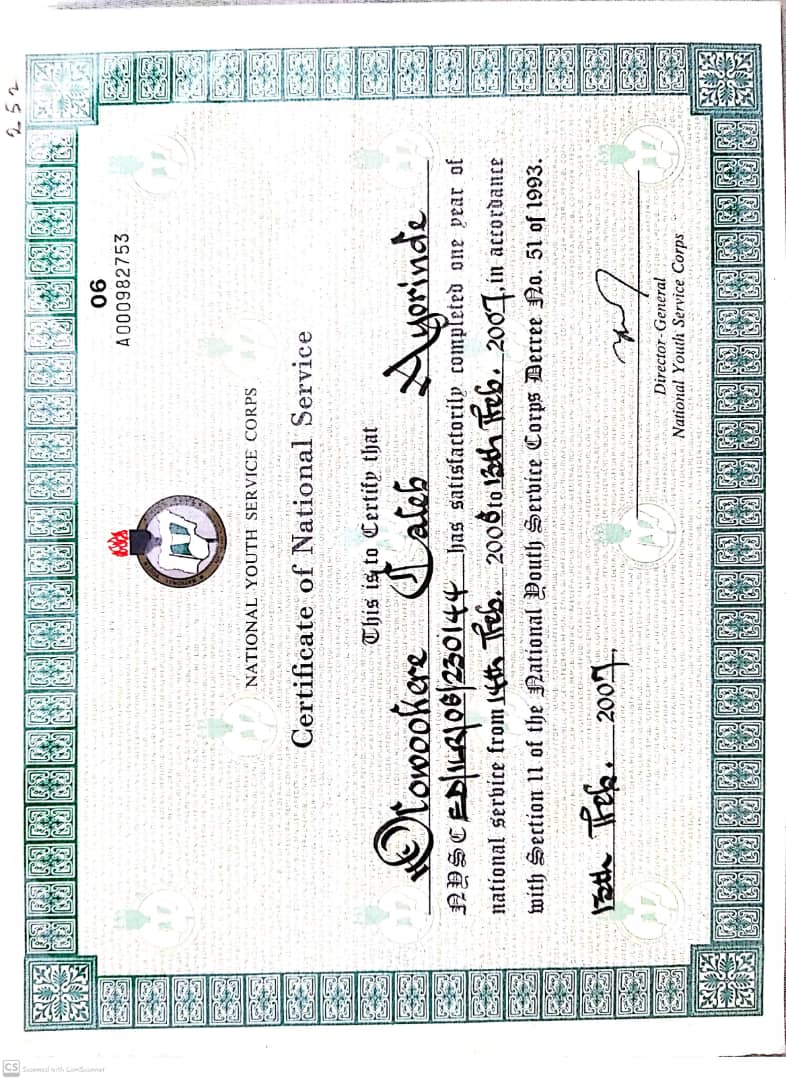 252
06
A000982753
NATIONAL YOUTH SERVICE CORPS
Certificate of National Service
This is to Certify that
Olowookere Caleb Ayorinde
NYSC ED/ILR/06/230144 has satisfactorily completed one year of
national service from 14th Feb. 2006 to 13th Feb. 2007, in accordance
with Section 11 of the National Youth Service Corps Decree No. 51 of 1993.
13th Feb. 2007.
Director-General
National Youth Service Corps
CS Scanned with CamScanner